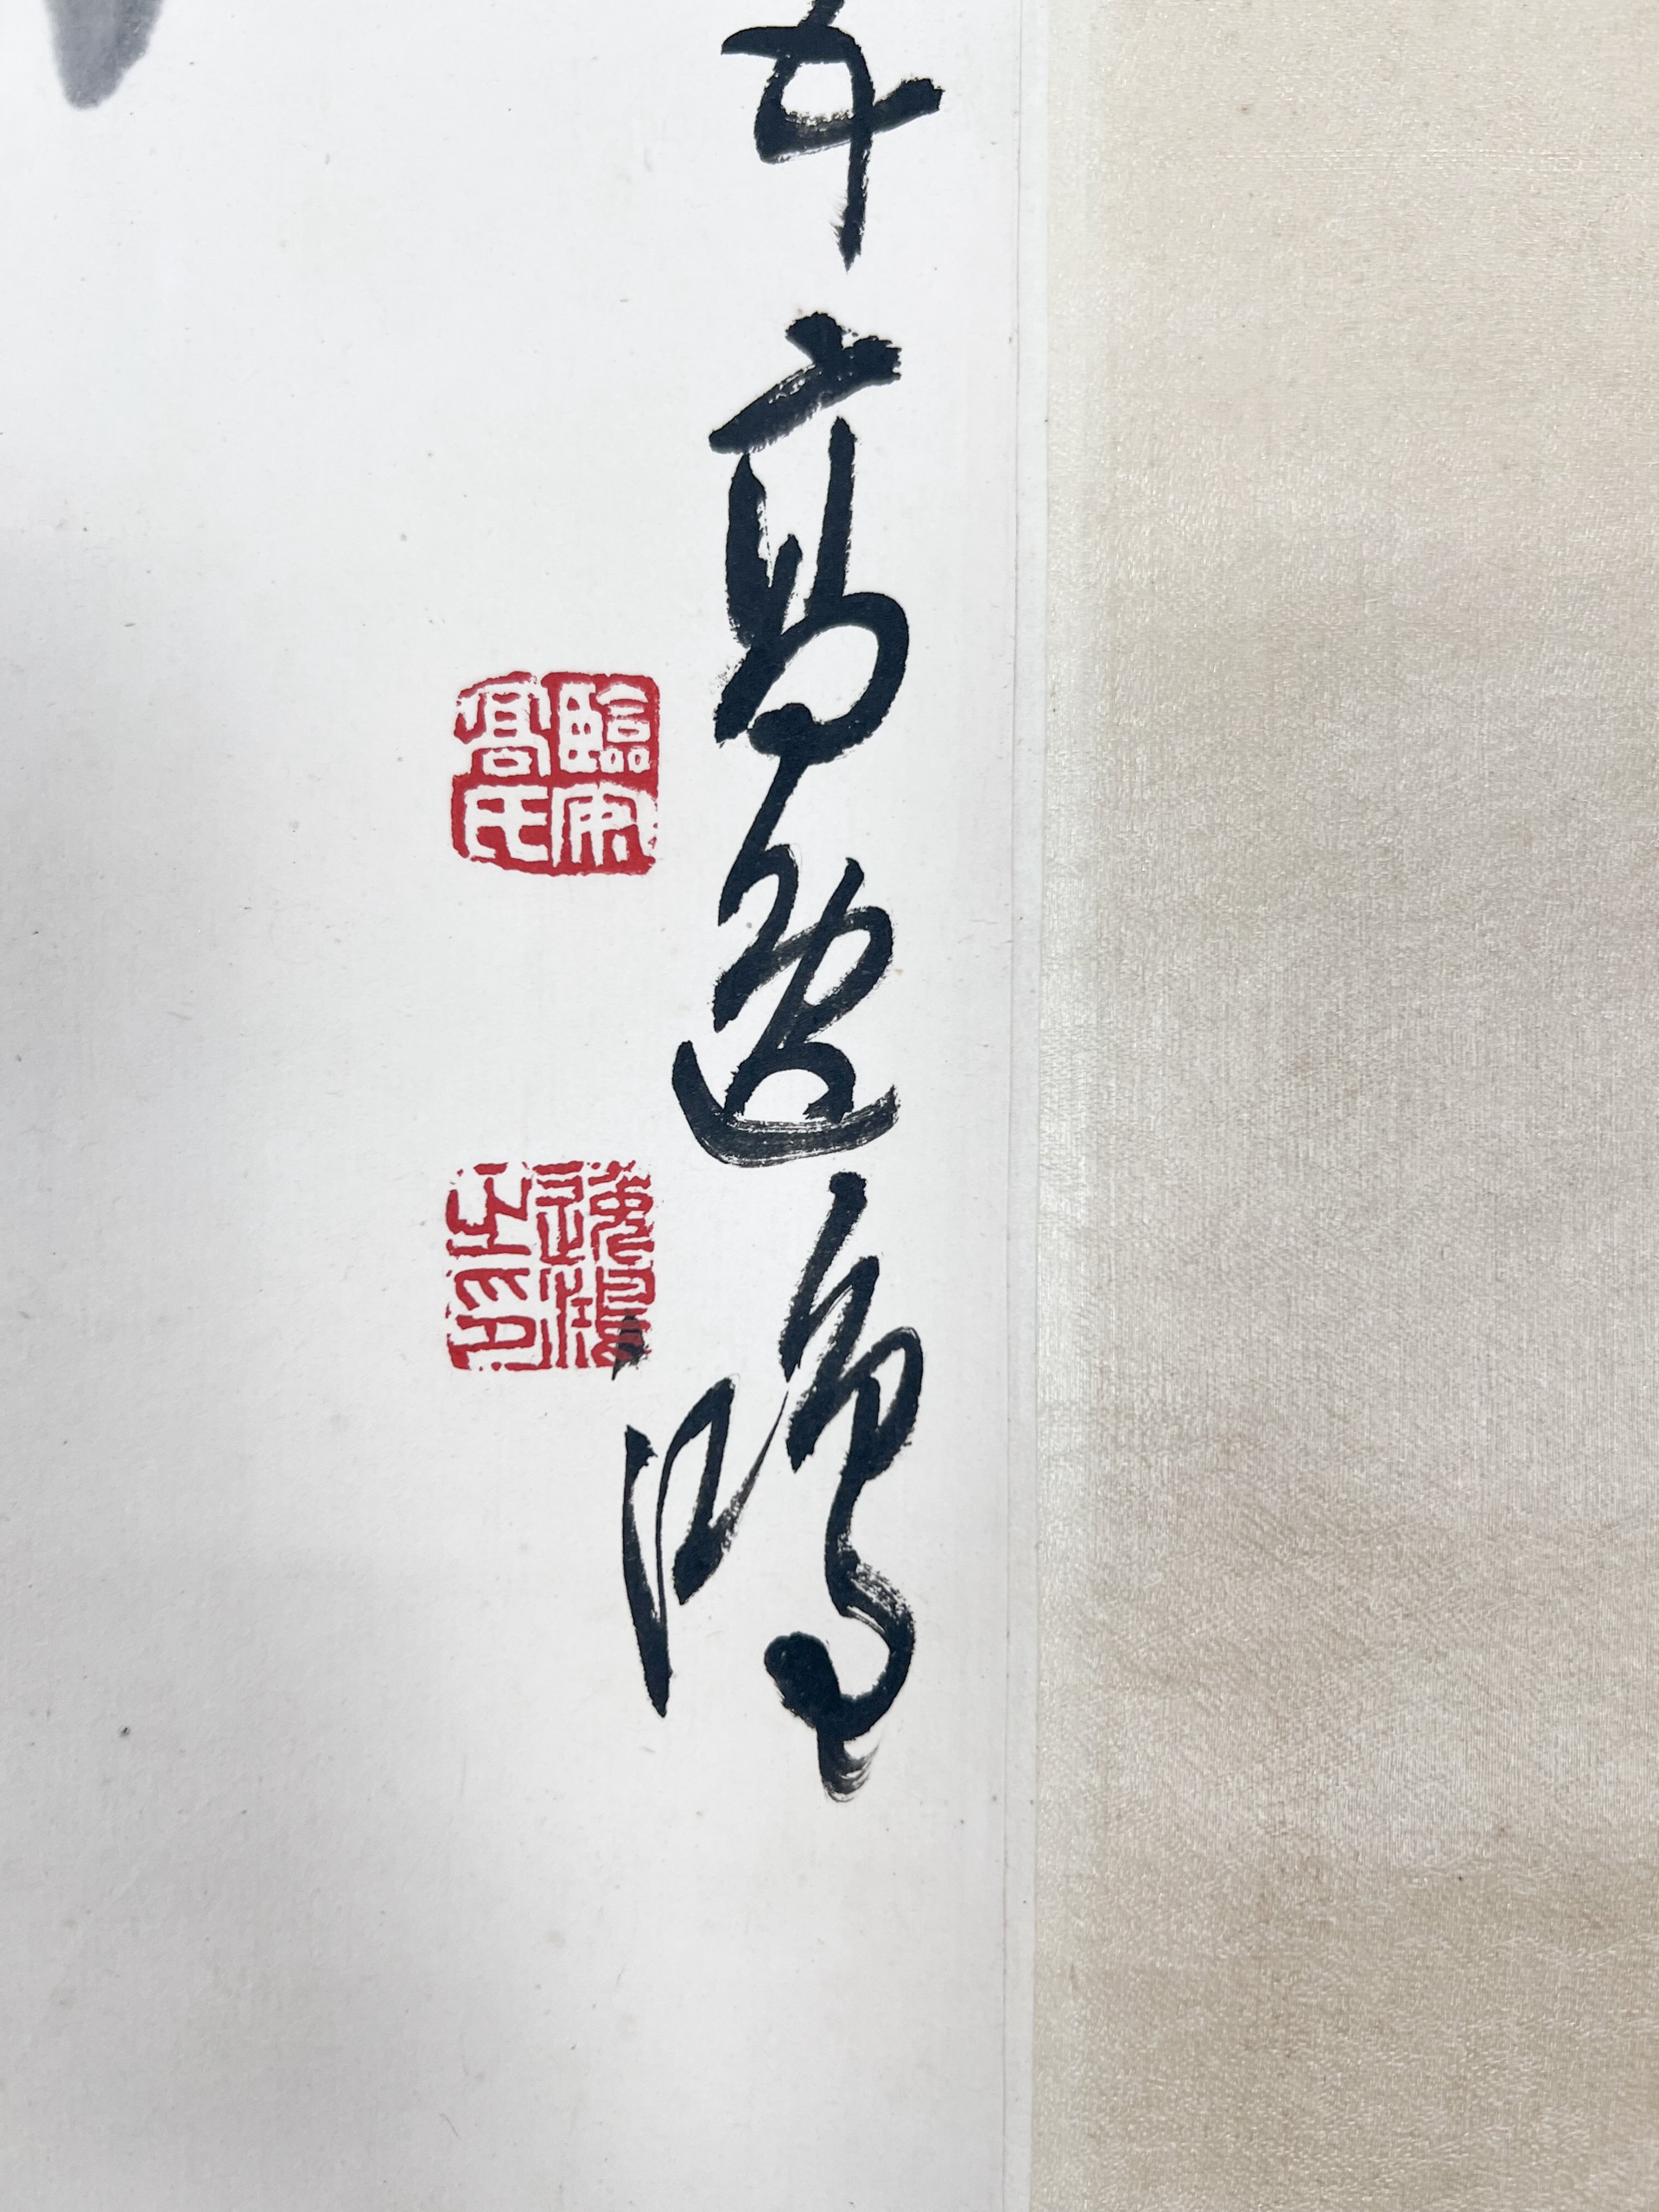 年高逸鴻
臨安
高氏
逸鴻
之印